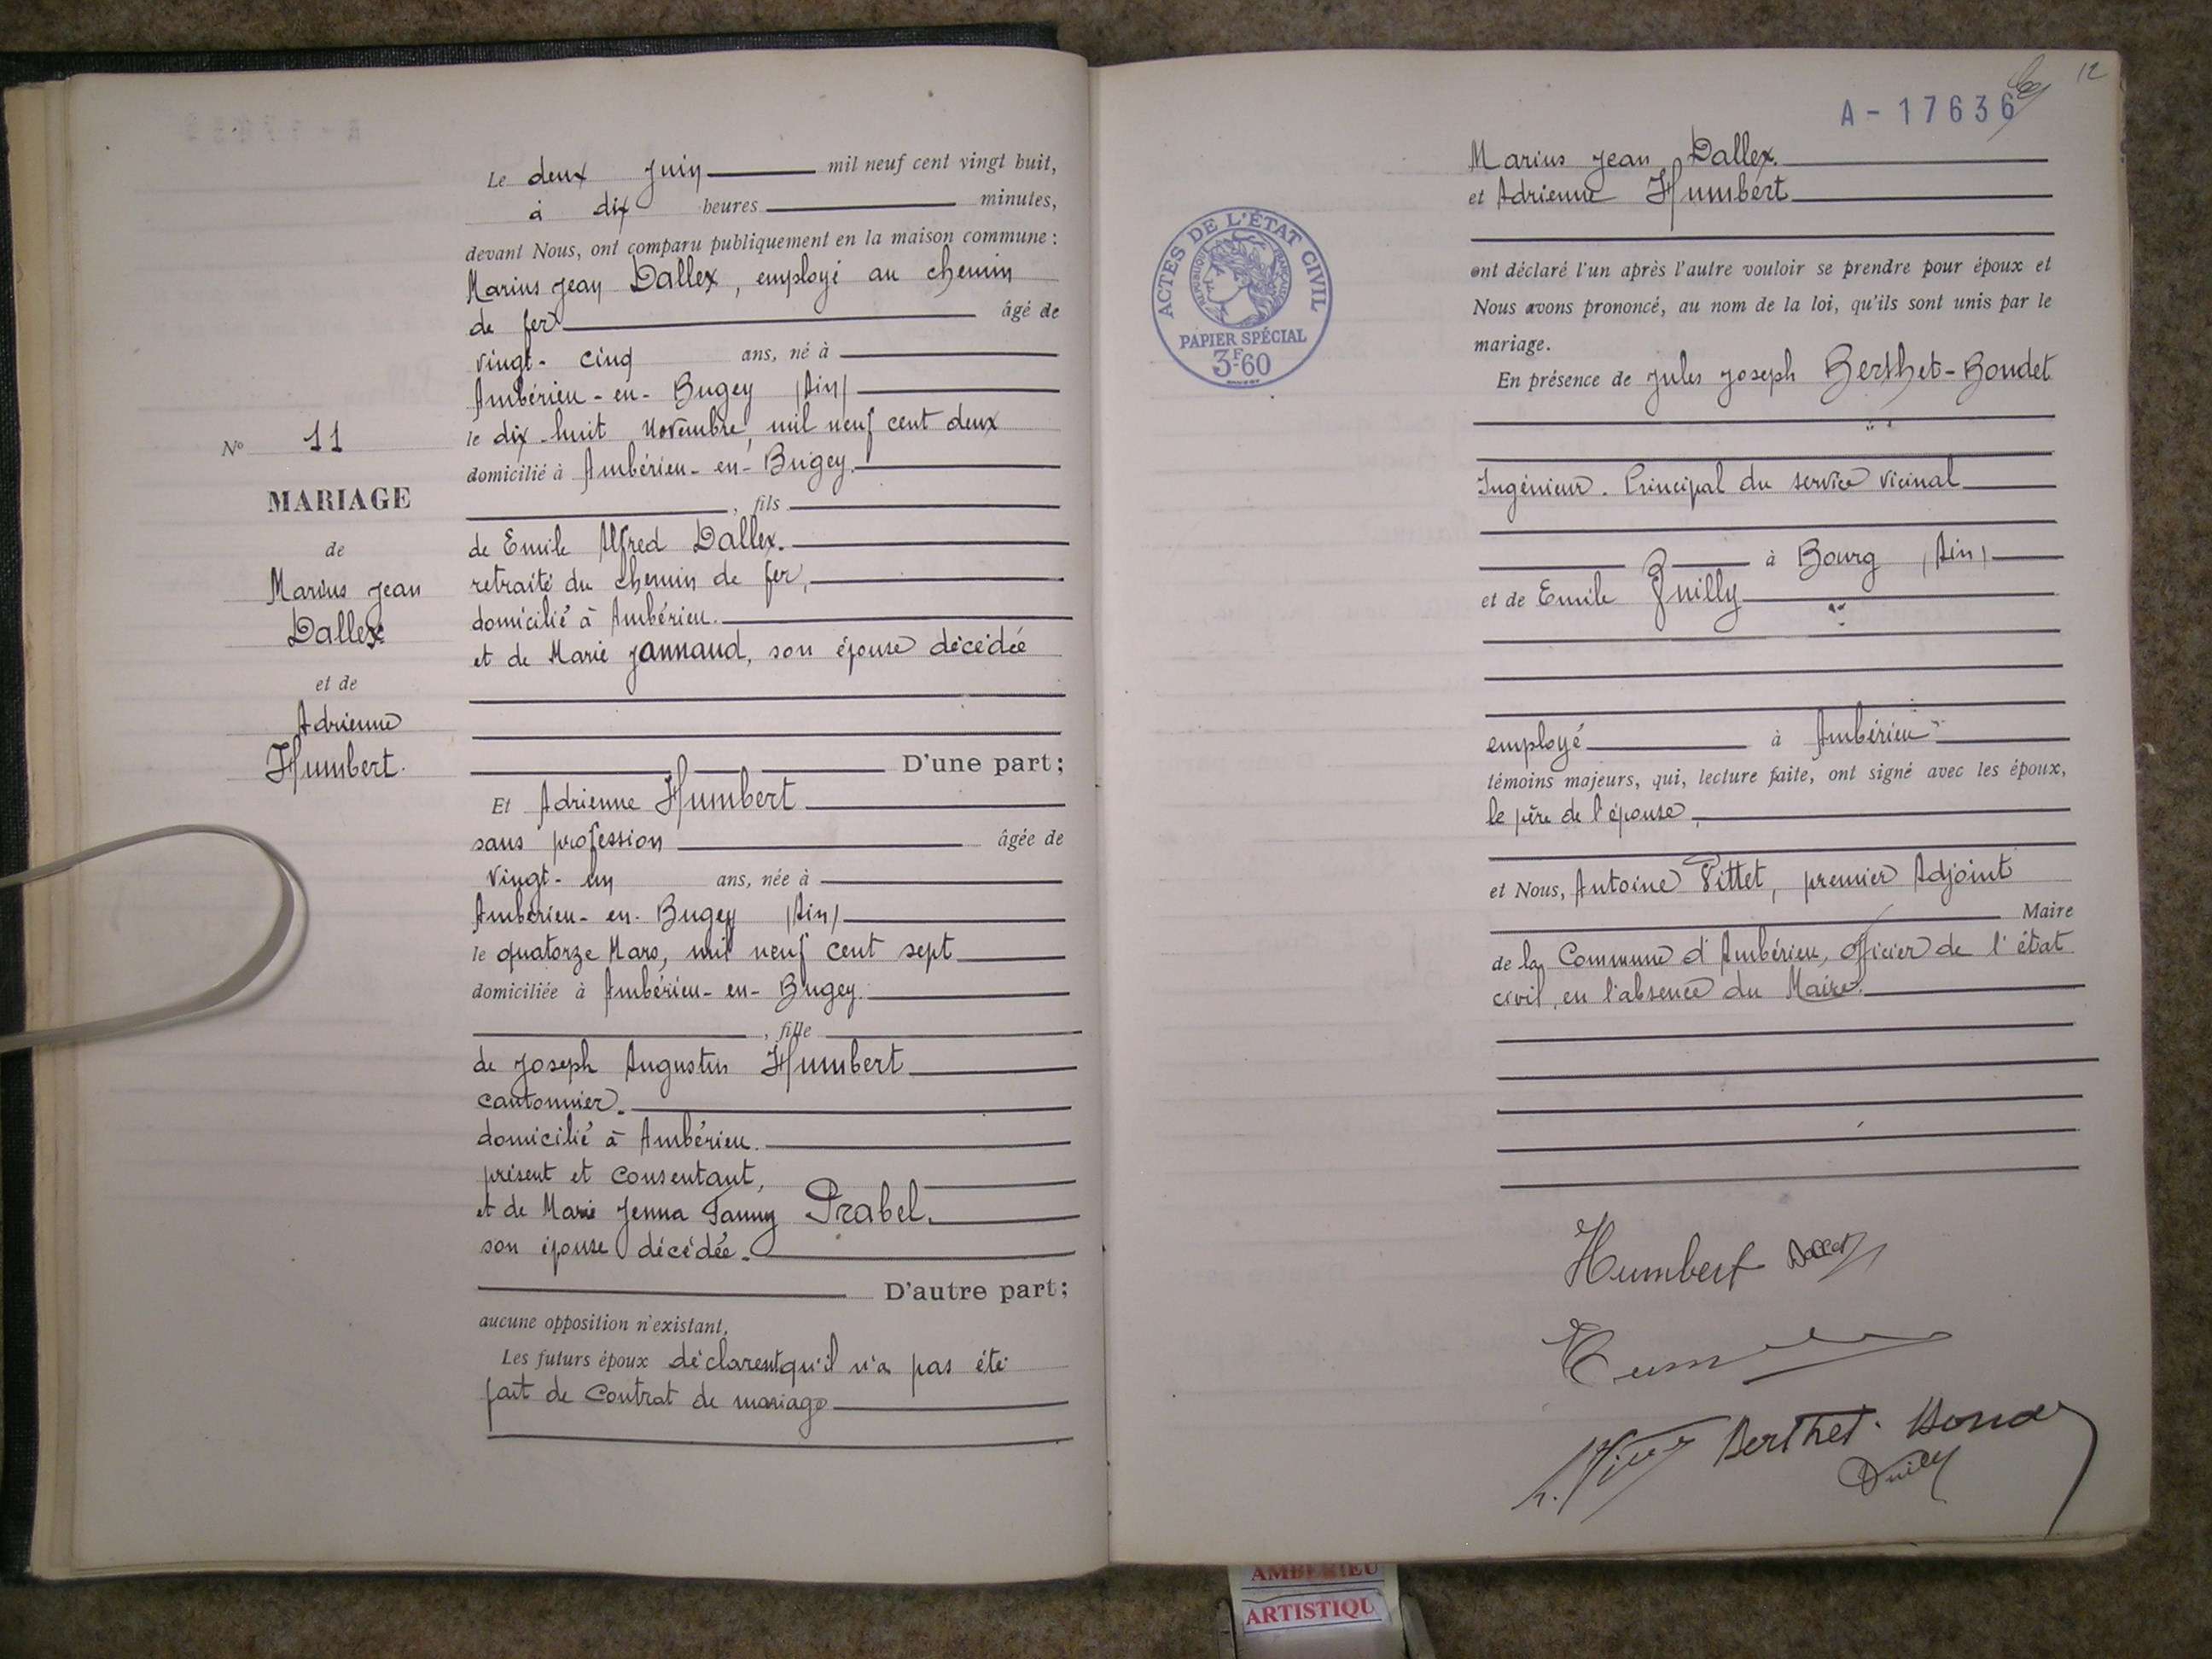 Le deux Juin mil neuf cent vingt huit,
à dix heures minutes,
devant Nous, ont comparu publiquement en la maison commune :
Marius Jean Dallex, employé au chemin
de fer âgé de
vingt-cinq ans, né à
Ambérieu-en-Bugey (Ain)
le dix-huit Novembre, mil neuf cent deux
domicilié à Ambérieu-en-Bugey.
, fils
de Emile Alfred Dallex.
retraité du chemin de fer,
domicilié à Ambérieu.
et de Marie Jannaud, son épouse décédée
D'une part;
Et Adrienne Humbert
sans profession âgée de
Vingt-un ans, née à
Ambérieu-en-Bugey (Ain)
le quatorze Mars, mil neuf cent sept
domiciliée à Ambérieu-en-Bugey.
, fille
de Joseph Augustin Humbert
cantonnier.
domicilié à Ambérieu.
présent et consentant,
et de Marie Jenna Fanny Prabel.
son épouse décédée.
D'autre part;
aucune opposition n'existant,
Les futurs époux déclarent qu'il n'a pas été
fait de Contrat de mariage
N° 11
MARIAGE
de
Marius Jean
Dallex
et de
Adrienne
Humbert.
12
A-17636
Marius Jean Dallex.
et Adrienne Humbert
ont déclaré l'un après l'autre vouloir se prendre pour époux et
Nous avons prononcé, au nom de la loi, qu'ils sont unis par le
mariage.
En présence de Jules Joseph Berthet-Bondet
Ingénieur. Principal du service vicinal
à Bourg (Ain)
et de Emile
employé à Ambérieu
témoins majeurs, qui, lecture faite, ont signé avec les époux,
le père de l'épouse,
et Nous, Antoine Pittet, premier Adjoint
Maire
de la Commune d'Ambérieu, officier de l'état
civil, en l'absence du Maire.
ACTES DE L'ÉTAT CIVIL
RÉPUBLIQUE FRANÇAISE
PAPIER SPÉCIAL
3F60
Humbert Dallex
Berthet-Bondet
AMBERIEU
ARTISTIQU